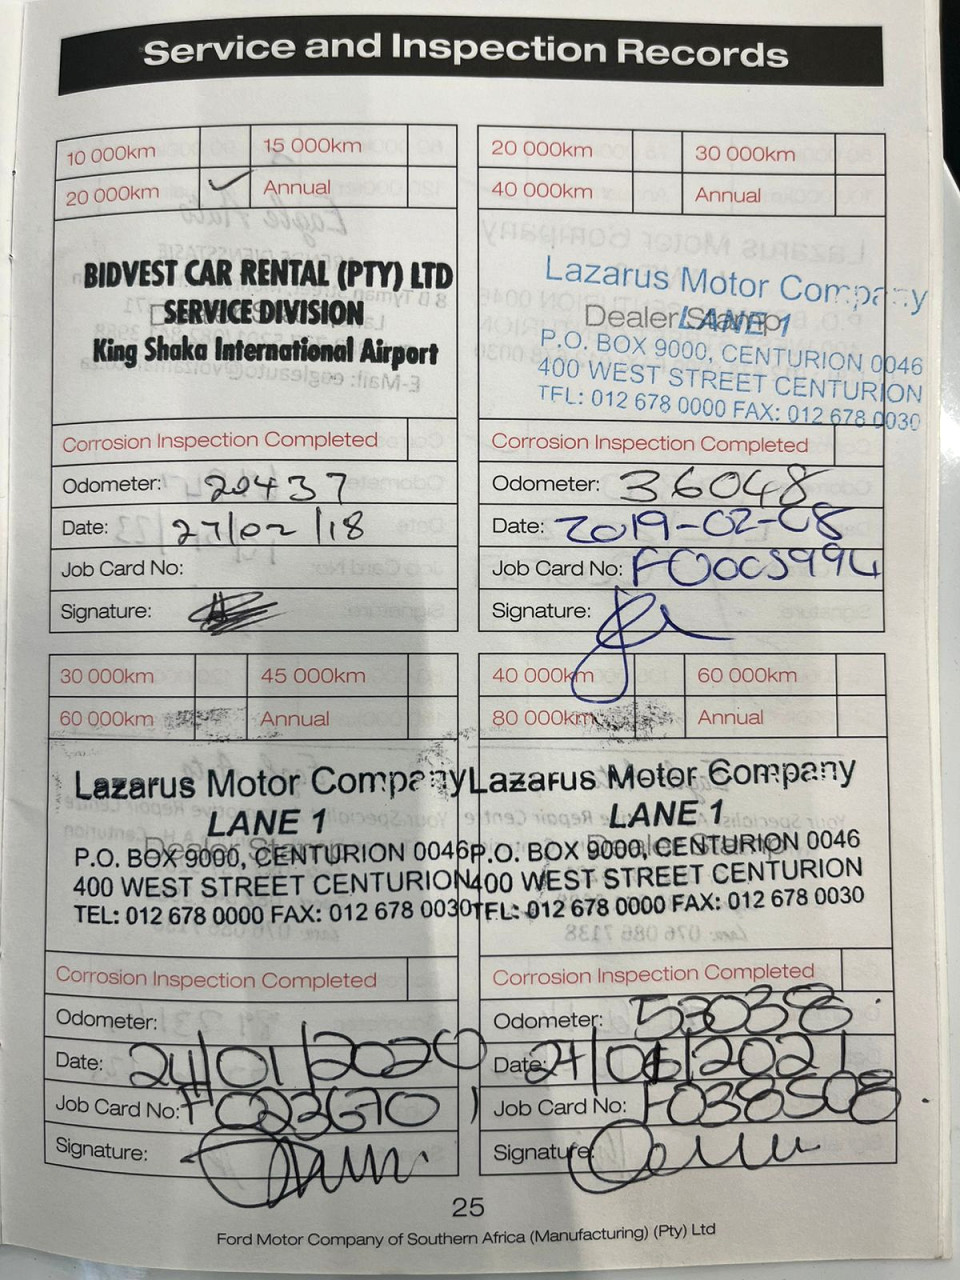 Service and Inspection Records
10 000km 15 000km
20 000km ✓ Annual
BIDVEST CAR RENTAL (PTY) LTD
SERVICE DIVISION
King Shaka International Airport
Corrosion Inspection Completed
Odometer: 20437
Date: 27/02/18
Job Card No:
Signature:
20 000km 30 000km
40 000km Annual
Lazarus Motor Company
Dealer Stamp
LANE 1
P.O. BOX 9000, CENTURION 0046
400 WEST STREET CENTURION
TEL: 012 678 0000 FAX: 012 678 0030
Corrosion Inspection Completed
Odometer: 36048
Date: 2019-02-08
Job Card No:
Signature:
30 000km 45 000km
60 000km Annual
Lazarus Motor Company
LANE 1
Dealer Stamp
P.O. BOX 9000, CENTURION 0046
400 WEST STREET CENTURION
TEL: 012 678 0000 FAX: 012 678 0030
Corrosion Inspection Completed
Odometer:
Date: 24/01/2020
Job Card No: F0223670
Signature:
40 000km 60 000km
80 000km Annual
Lazarus Motor Company
LANE 1
P.O. BOX 9000, CENTURION 0046
400 WEST STREET CENTURION
TEL: 012 678 0000 FAX: 012 678 0030
Corrosion Inspection Completed
Odometer: 53038
Date: 24/06/2021
Job Card No: F038508
Signature:
25
Ford Motor Company of Southern Africa (Manufacturing) (Pty) Ltd